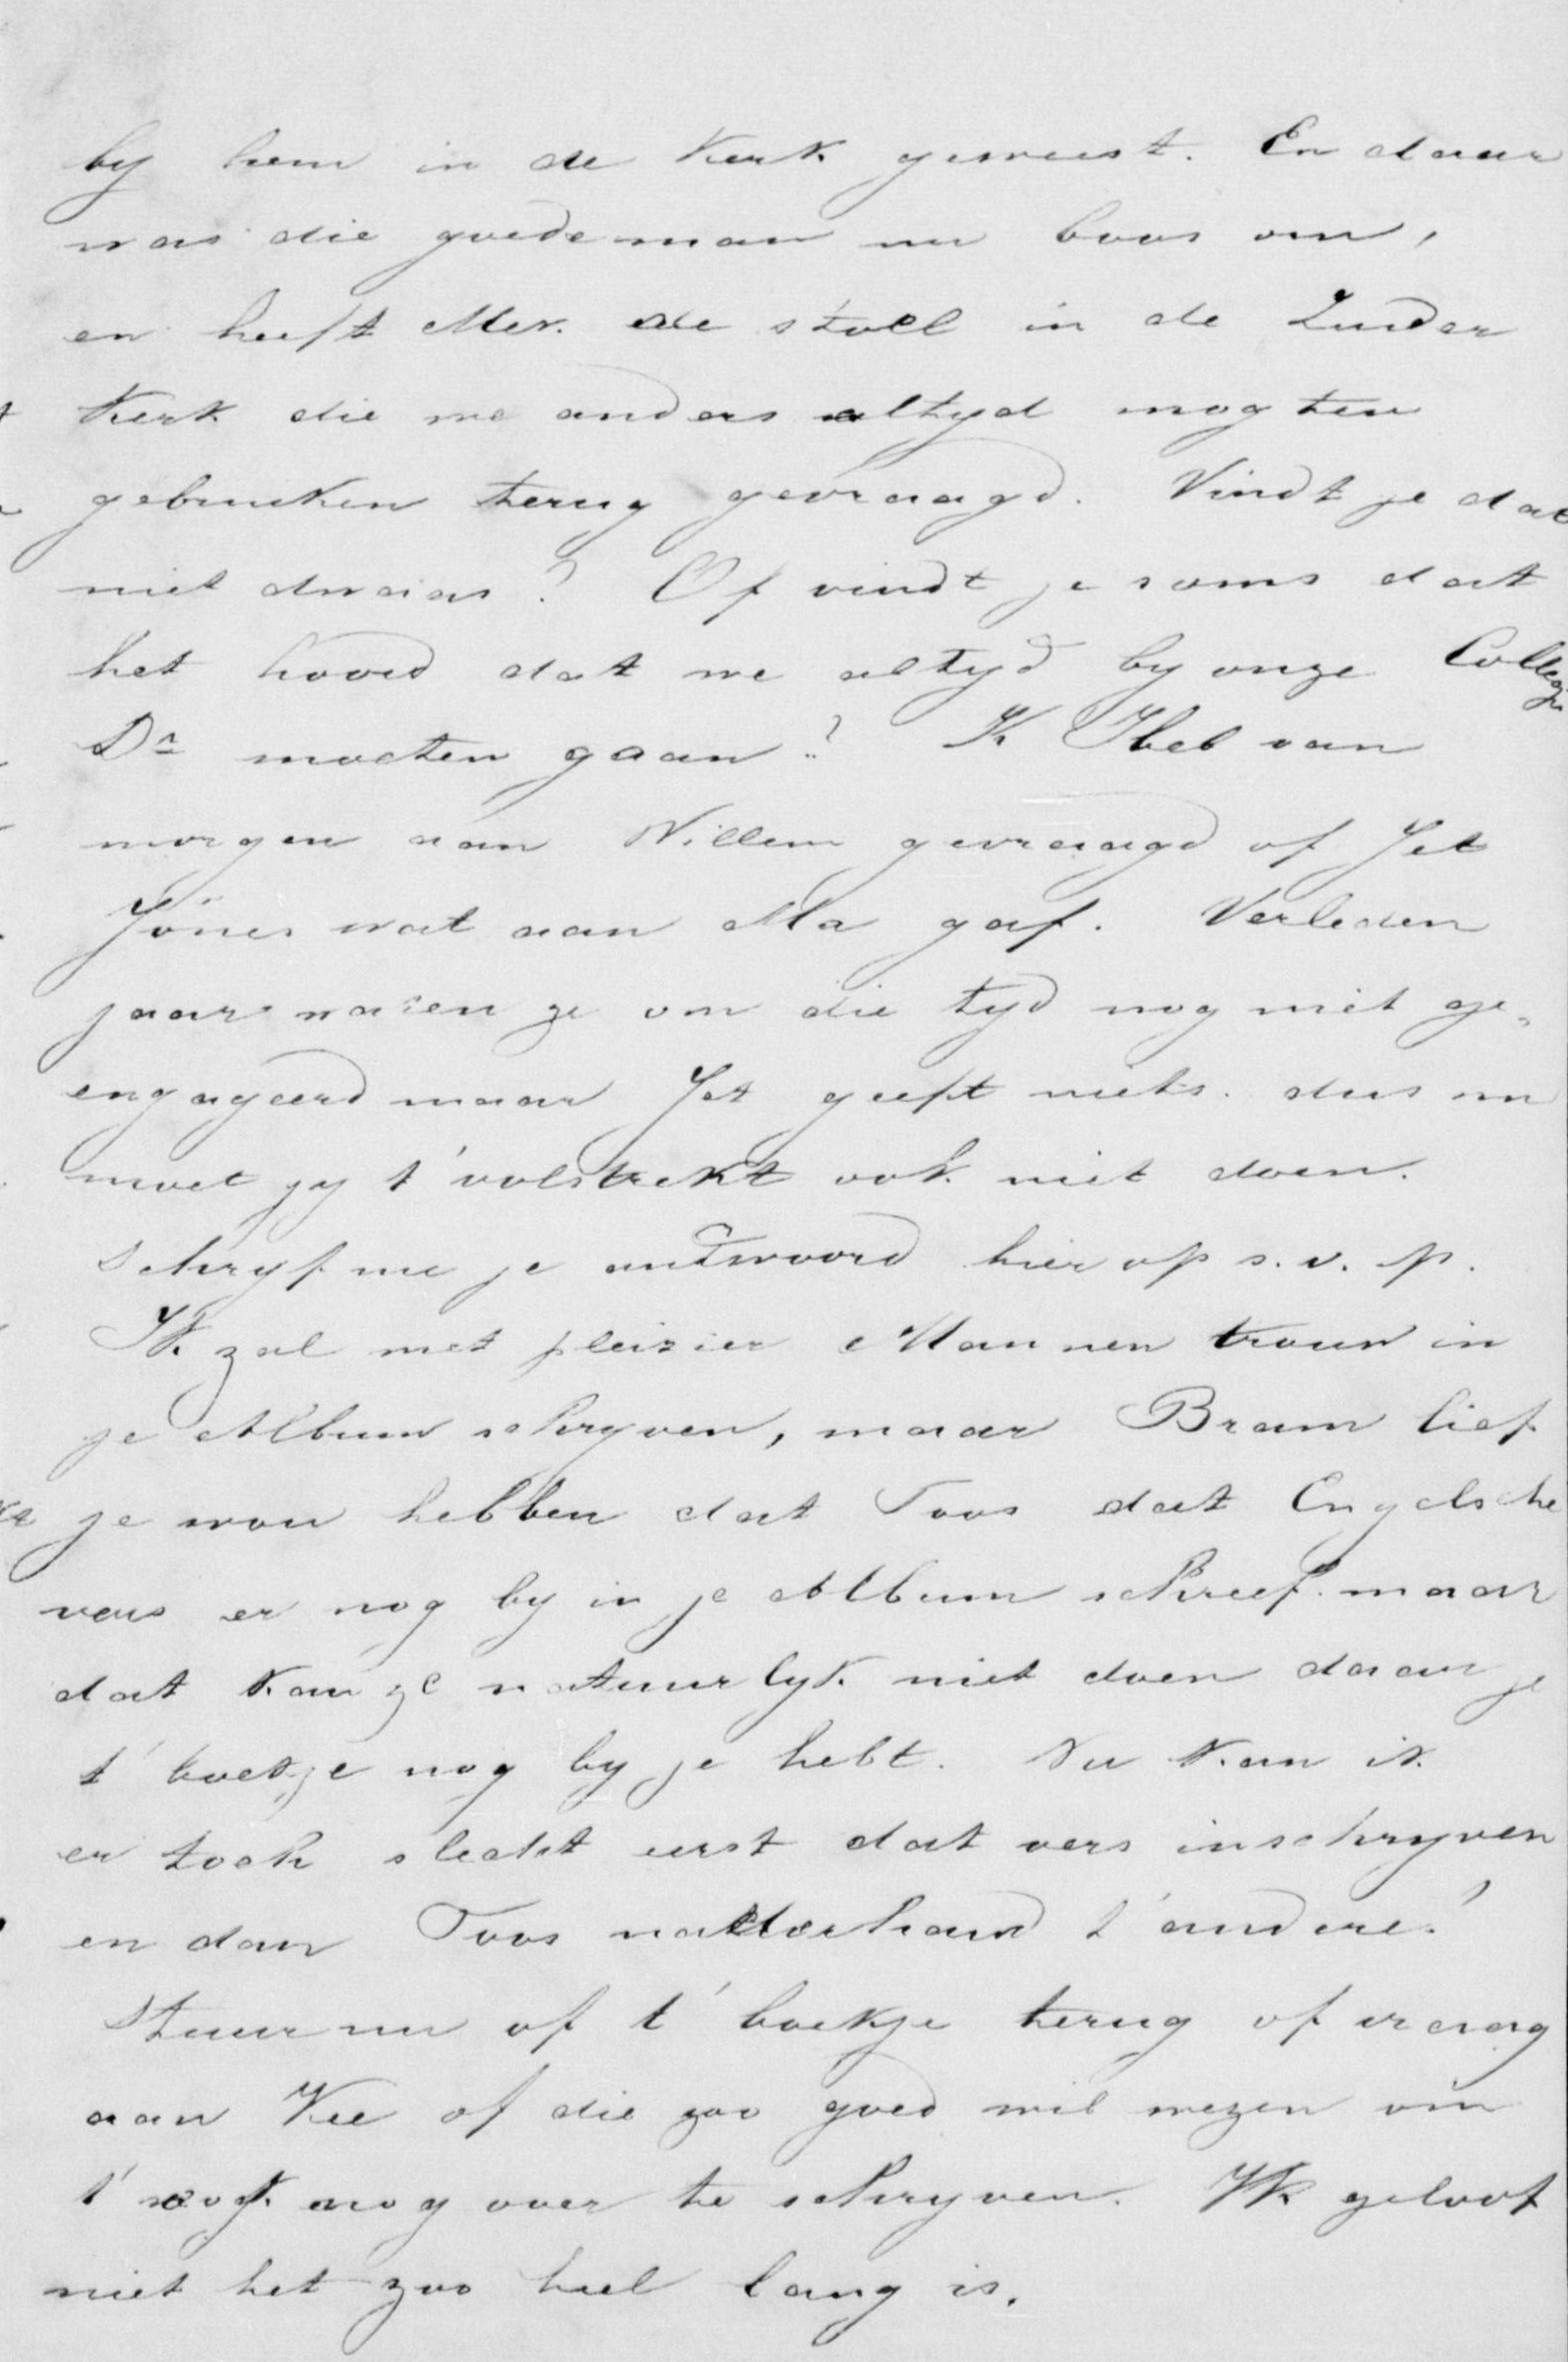 by hem in de Kerk geweest. En daar
was die goede man nu boos om,
en heeft Mev. de stoel in de Zuider
Kerk die we anders altyd mogten
gebruiken terug gevraagd. Vindt je dat
niet dwaas? Of vindt je soms dat
het hoord dat we altyd by onze Collega
Dr moeten gaan? Ik heb van
morgen aan Willem gevraagd of Jet
Jones wat aan Ma gaf. Verleden
jaar waren ze om die tyd nog niet ge„
engageerd maar Jet geeft niets. dus nu
moet jy t' volstrekt ook niet doen.
Schryf me je antwoord hier op s.v.p.
Ik zal met pleizier Mannen trouw in
je Album schryven, maar Bram lief
je wou hebben dat Toos dat Engelsche
vers er nog by in je Album schreef. maar
dat kan ze natuurlyk niet doen daar je
t' boekje nog by je hebt. Nu kan ik
er toch slecht eerst dat vers inschryven
en dan Toos naderhand t' andere!
Stuur nu of t' boekje terug of vraag
aan Kee of die zoo goed wil wezen om
t' ook nog over te schryven. Ik geloof
niet het zoo heel lang is.